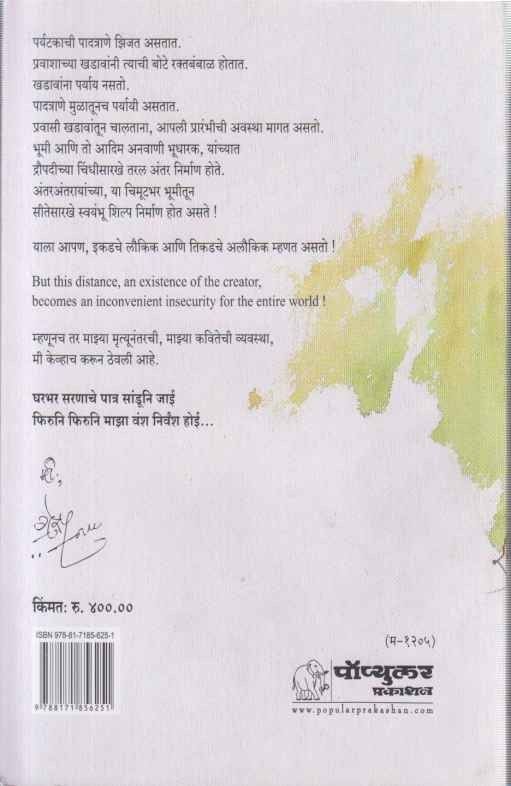 पर्यटकाची पादत्राणे झिजत असतात.
प्रवाशाच्या खडावांनी त्याची बोटे रक्तबंबाळ होतात.
खडावांना पर्याय नसतो.
पादत्राणे मुळातूनच पर्यायी असतात.
प्रवासी खडावांतून चालताना, आपली प्रारंभीची अवस्था मागत असतो.
भूमी आणि तो आदिम अनवाणी भूधारक, यांच्यात
द्रौपदीच्या चिंधीसारखे तरल अंतर निर्माण होते.
अंतरअंतरायांच्या, या चिमूटभर भूमीतून
सीतेसारखे स्वयंभू शिल्प निर्माण होत असते !
याला आपण, इकडचे लौकिक आणि तिकडचे अलौकिक म्हणत असतो !
But this distance, an existence of the creator,
becomes an inconvenient insecurity for the entire world !
म्हणूनच तर माझ्या मृत्यूनंतरची, माझ्या कवितेची व्यवस्था,
मी केव्हाच करून ठेवली आहे.
घरभर सरणाचे पात्र सांडूनि जाई
फिरुनि फिरुनि माझा वंश निर्वंश होई...
मी,
किंमतः रु. ४००.००
ISBN 978-81-7185-625-1
9 788171 856251
(म-१२०५)
पॉप्युलर
प्रकाशन
www.popularprakashan.com